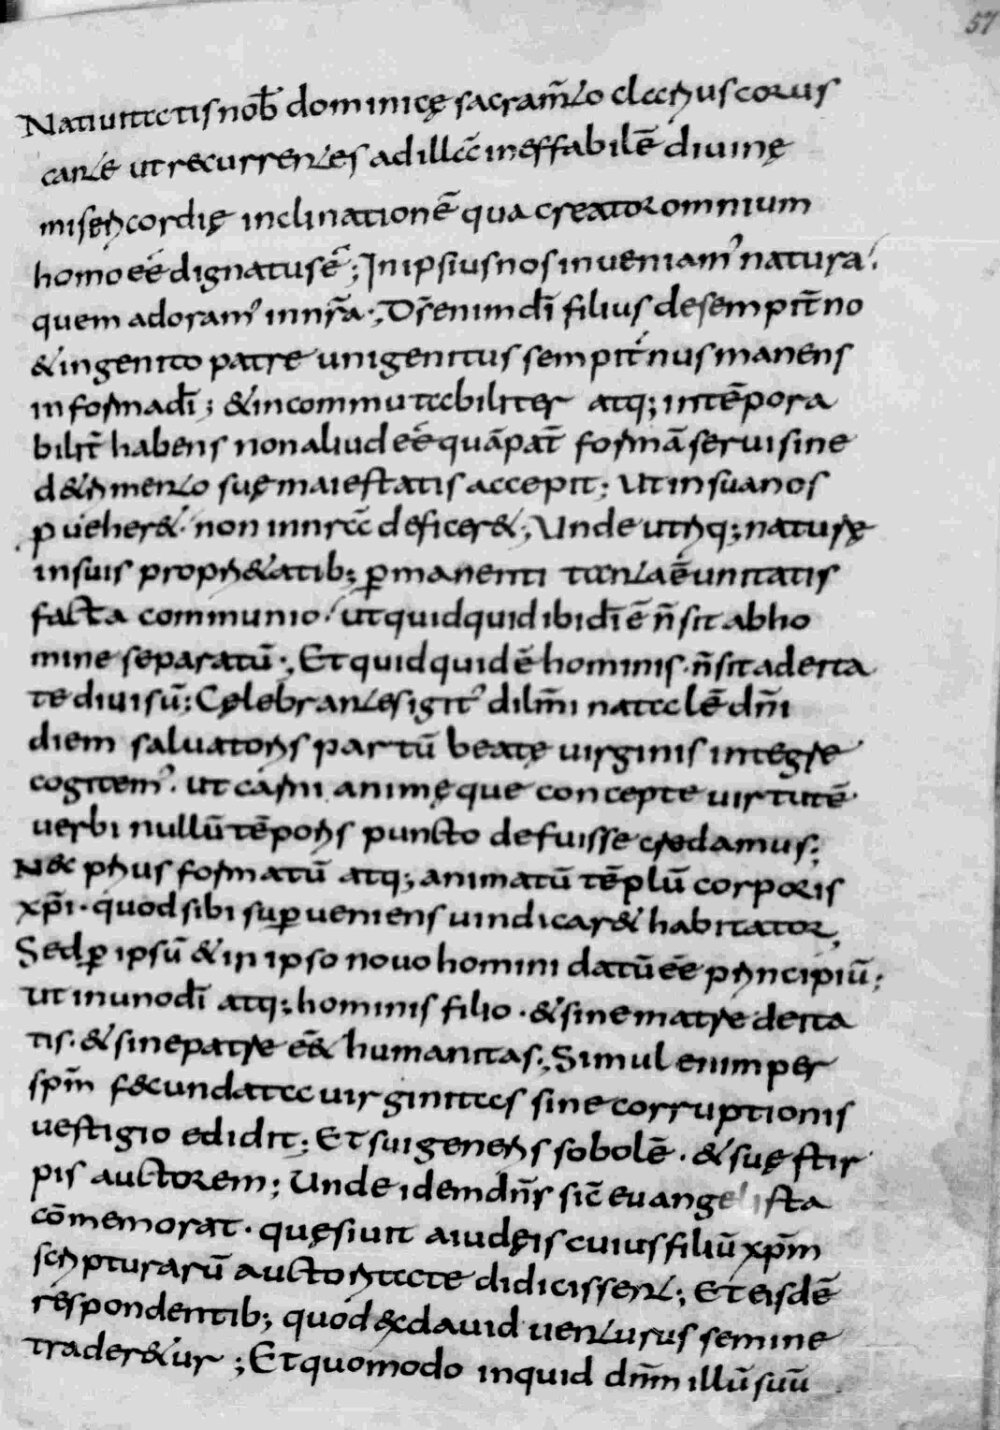 57
Natiuitatis nob̄ dominicę sacram̄to clarius corus
cante ut recurrentes ad illā ineffabilē diuinę
misericordię inclinationē qua creator omnium
homo eé dignatus ē; In ipsius nos inueniam' natura.
quem adoram' in nr̄a; Dr̄ enim dī filius de sempit̄no
& ingenito patre unigenitus sempit̄nus manens
in forma dī; & incommutabiliter atq; intēpora
bilit̄ habens non aliud eé quā pat̄ formā serui sine
d&rimento suę maiestatis accepit; Ut in sua nos
pueher&. non in nr̄a deficer&; Unde utriq; naturę
in suis propri&atib; p̱manenti tanta ē unitatis
facta communio. ut quidquid ibi dī ē n̄ sit ab ho
mine separatū; Et quidquid ē hominis. n̄ sit a deita
te diuisū; Cęlebrantes igit' dilm̄i natalē dm̄i
diem saluatoris partū beatę uirginis integre
cogitem'. ut carni animę que concepte uirtutē
uerbi nullū tēporis puncto defuisse credamus;
N&c prius formatū atq; animatū tēplū corporis
xp̄i. quod sibi sup̱ueniens uindicar& habitator,
Sed p̱ ipsū & in ipso nouo homini datū eē principiū;
ut in uno dī atq; hominis filio. & sine matre deita
tis. & sine patre eé& humanitas; Simul enim per
spm̄ f&cundata uirginitas sine corruptionis
uestigio edidit; Et sui generis sobolē. & suę stir
pis auctorem; Unde idem dn̄s sic̄ euangelista
cōmemorat. quęsiuit a iudęis cuius filiū xp̄m
scripturarū auctoritate didicissent; Et eisdē
respondentib; quod &x dauid uenturus semine
trader&ur; Et quomodo inquid dm̄m illū suū